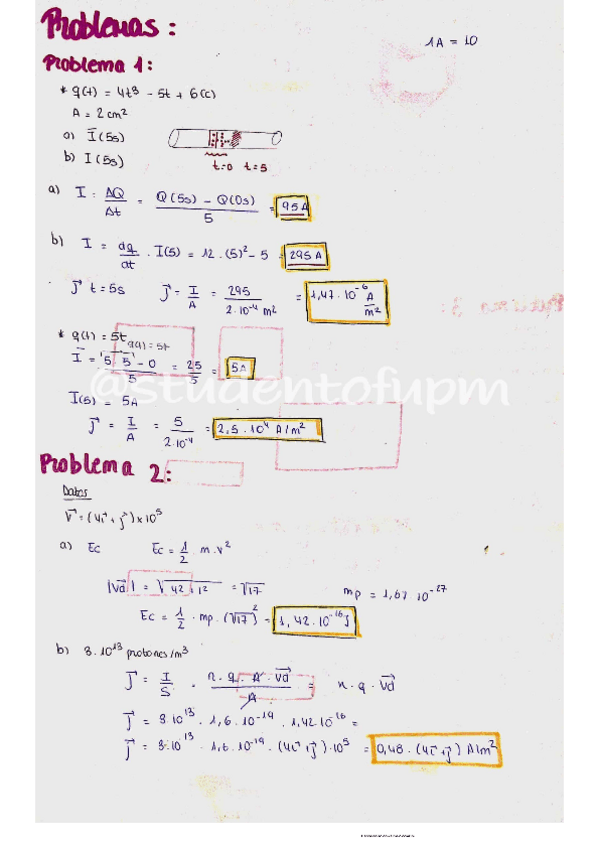 Problemas:
1A = 10
Problema 1:
* q(t) = 4t³ - 5t + 6 (c)
A = 2cm²
a) Ī (5s)
b) I (5s)
t=0 t=5
a) I = ΔQ/Δt = Q(5s) - Q(0s)/5 = 95A
b) I = dq/dt · I(5) = 12·(5)² - 5 = 295 A
J⃗ t = 5s J⃗ = I/A = 295/2·10⁻⁴ m² = 1,47·10⁻⁶ A/m²
* q(t) = 5t
q(t) = 5t
Ī = 5·5 - 0/5 = 25/5 = 5A
@studentofupm
I(5) = 5A
J⃗ = I/A = 5/2·10⁻⁴ = 2,5·10⁴ A/m²
Problema 2:
Datos
v⃗ = (4i⃗ + j⃗) × 10⁵
a) Ec Ec = 1/2 · m · v²
|v⃗d| = √4² + 1² = √17
mp = 1,67 10⁻²⁷
Ec = 1/2 · mp · (√17)² = 1,42·10⁻¹⁶ J
b) 3·10¹³ protones/m³
J⃗ = I/S = n·q·A·v⃗d/A = n·q·v⃗d
J⃗ = 3·10¹³ · 1,6·10⁻¹⁹ · 1,42·10⁻¹⁶ =
J⃗ = 3·10¹³ · 1,6·10⁻¹⁹ · (4i⃗ + j⃗)·10⁵ = 0,48·(4i⃗ + j⃗) A/m²